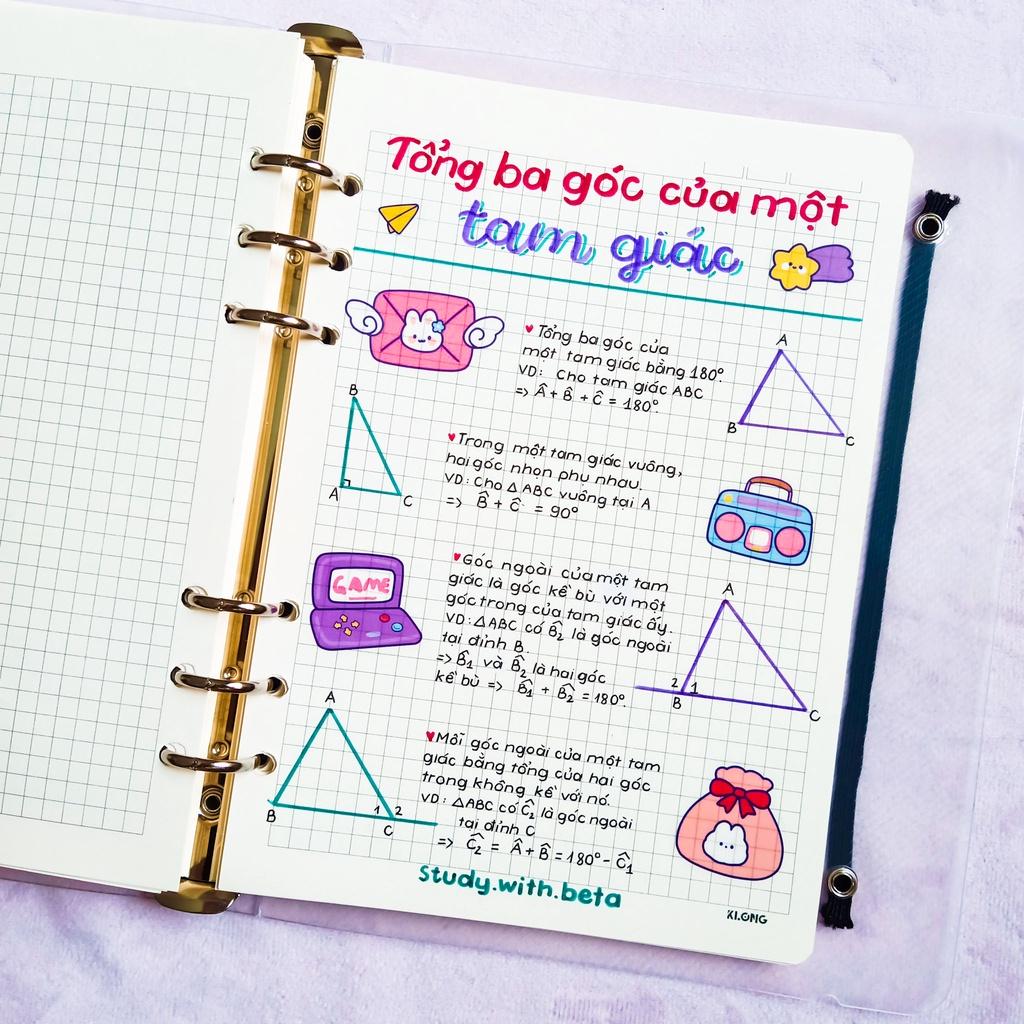 Tổng ba góc của một
tam giác
♥ Tổng ba góc của
một tam giác bằng 180°.
VD: Cho tam giác ABC
=> Â + B̂ + Ĉ = 180°.
A
B
C
B
A
C
♥ Trong một tam giác vuông,
hai góc nhọn phụ nhau.
VD: Cho △ABC vuông tại A
=> B̂ + Ĉ = 90°
GAME
♥ Góc ngoài của một tam
giác là góc kề bù với một
góc trong của tam giác ấy.
VD: △ABC có B̂₂ là góc ngoài
tại đỉnh B.
=> B̂₁ và B̂₂ là hai góc
kề bù => B̂₁ + B̂₂ = 180°.
A
2
1
B
C
A
B
1
2
C
♥ Mỗi góc ngoài của một tam
giác bằng tổng của hai góc
trong không kề với nó.
VD: △ABC có Ĉ₂ là góc ngoài
tại đỉnh C
=> Ĉ₂ = Â + B̂ = 180° - Ĉ₁
study.with.beta
KLONG